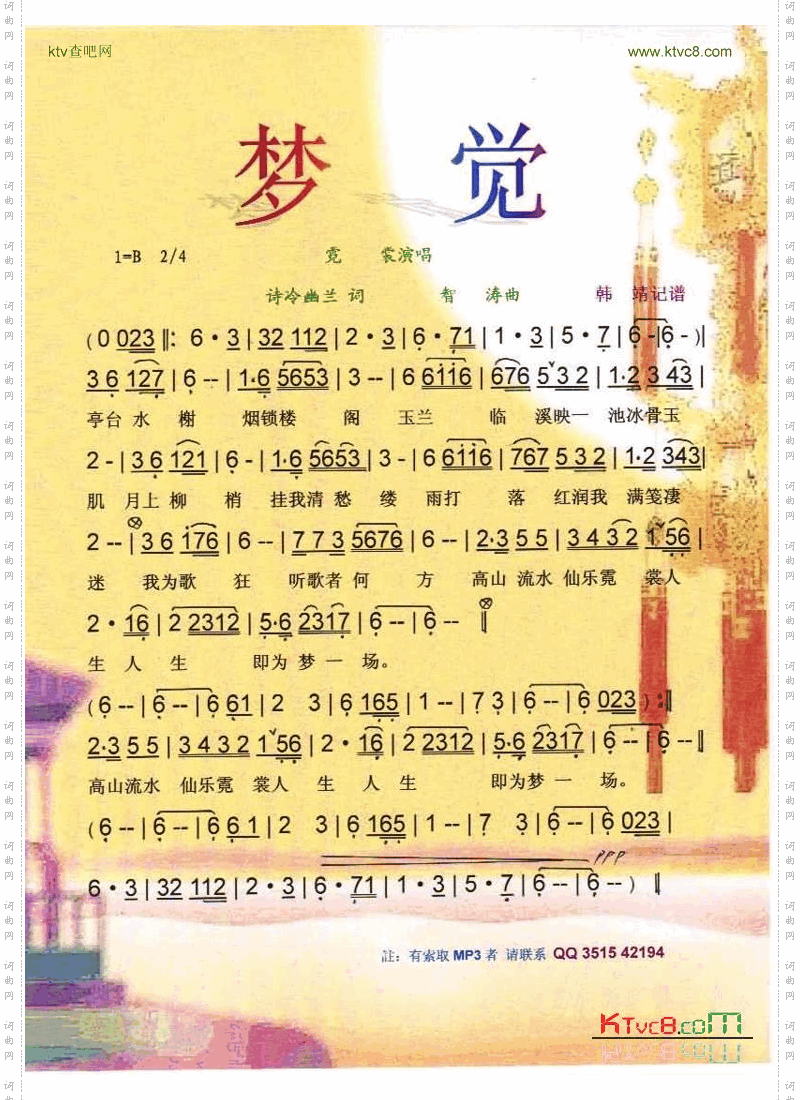 ktv查吧网 www.ktvc8.com
梦 觉
1=B 2/4 霓 裳演唱
诗冷幽兰 词 智 涛曲 韩 靖记谱
( 0 023 ‖: 6 · 3 | 32 112 | 2 · 3 | 6 · 71 | 1 · 3 | 5 · 7 | 6 - | 6 - ) ‖
3 6 127 | 6 -- | 1·6 5653 | 3 -- | 6 6116 | 676 5 3 2 | 1·2 3 43 |
亭台 水 榭 烟锁楼 阁 玉兰 临 溪映一 池冰骨玉
2 - | 3 6 121 | 6 - | 1·6 5653 | 3 - | 6 6116 | 767 5 3 2 | 1·2 343 |
肌 月上 柳 梢 挂我清 愁 缕 雨打 落 红润我 满笺凄
2 -- | 3 6 176 | 6 -- | 7 7 3 5676 | 6 -- | 2·3 5 5 | 3 4 3 2 1 56 |
迷 我为歌 狂 听歌者 何 方 高山 流水 仙乐霓 裳人
2 · 16 | 2 2312 | 5·6 2317 | 6 -- | 6 -- ‖
生 人 生 即为 梦 一 场。
( 6 -- | 6 -- | 6 61 | 2 3 | 6 165 | 1 -- | 7 3 | 6 -- | 6 023 ) :‖
2·3 5 5 | 3 4 3 2 1 56 | 2 · 16 | 2 2312 | 5·6 2317 | 6 -- | 6 -- ‖
高山流水 仙乐霓 裳人 生 人 生 即为梦 一 场。
( 6 -- | 6 -- | 6 6 1 | 2 3 | 6 165 | 1 -- | 7 3 | 6 -- | 6 023 |
ppp
6 · 3 | 32 112 | 2 · 3 | 6 · 71 | 1 · 3 | 5 · 7 | 6 -- | 6 -- ) ‖
註：有索取 MP3 者 请联系 QQ 3515 42194
KTvc8.com